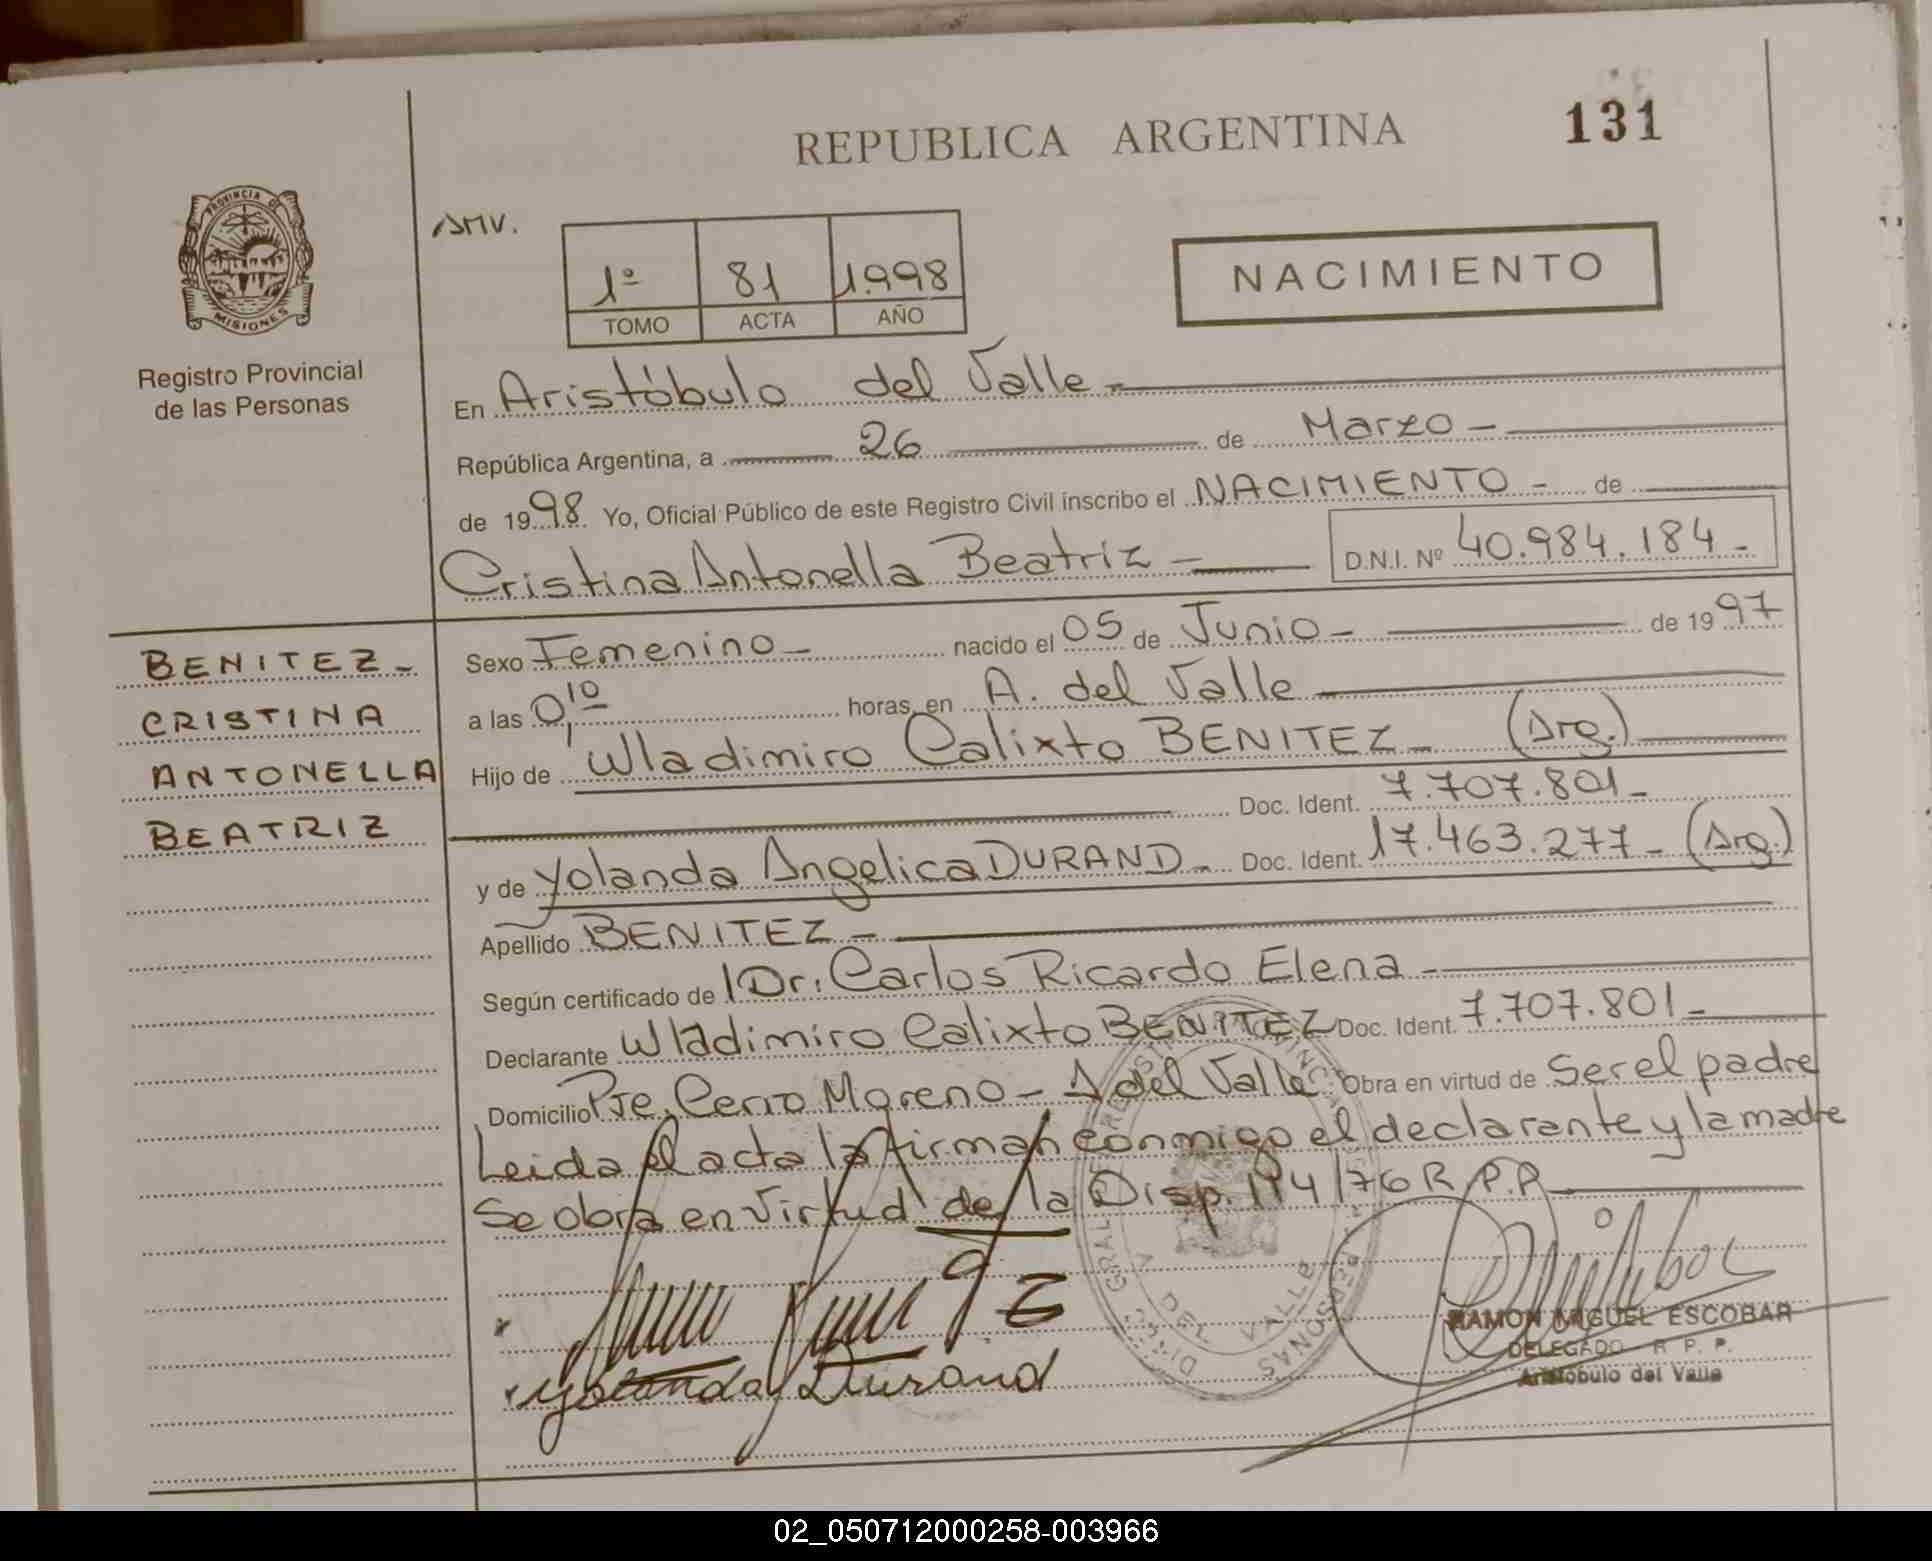 REPUBLICA ARGENTINA
131
PROVINCIA DE
MISIONES
Registro Provincial
de las Personas
AMV.
1º 81 1.998
TOMO ACTA AÑO
NACIMIENTO
En Aristóbulo del Valle -
República Argentina, a 26 de Marzo -
de 19 98. Yo, Oficial Público de este Registro Civil inscribo el NACIMIENTO - de
Cristina Antonella Beatriz - D.N.I. Nº 40.984.184 -
BENITEZ -
CRISTINA
ANTONELLA
BEATRIZ
Sexo Femenino - nacido el 05 de Junio - de 19 97
a las 0,10 horas, en A. del Valle -
Hijo de Wladimiro Calixto BENITEZ - (Arg.)
Doc. Ident. 7.707.801 -
y de Yolanda Angelica DURAND - Doc. Ident. 17.463.277 - (Arg.)
Apellido BENITEZ -
Según certificado de Dr. Carlos Ricardo Elena -
Declarante Wladimiro Calixto BENITEZ Doc. Ident. 7.707.801 -
Domicilio Pje. Cerro Moreno - A del Valle. Obra en virtud de Ser el padre
Leida el acta la firman conmigo el declarante y la madre
Se obra en virtud de la Disp. 114/76 R.P.P. -
Yolanda Durand
DEL VALLE
RAMON MIGUEL ESCOBAR
DELEGADO R. P. P.
Aristóbulo del Valle
02_050712000258-003966